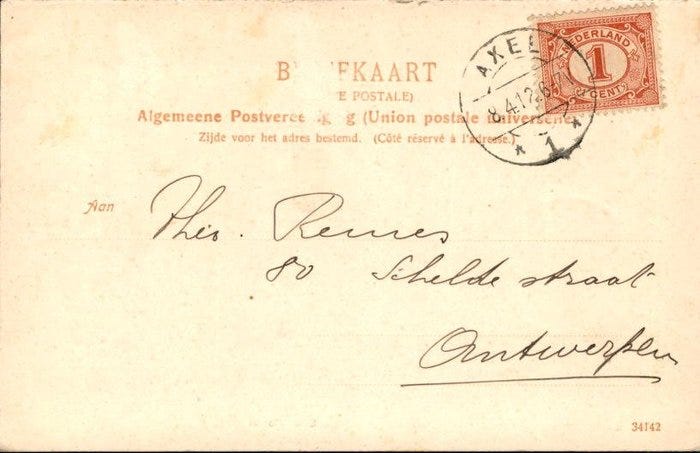 B   EFKAART
E POSTALE)
Algemeene Postveree   ig   g (Union postale universelle)
Zijde voor het adres bestemd. (Côté réservé à l'adresse.)
AXEL
8.4.12.6-7
1
NEDERLAND
1
CENT
Aan
Theo. Remes
80 Scheldestraat
Antwerpen
34142